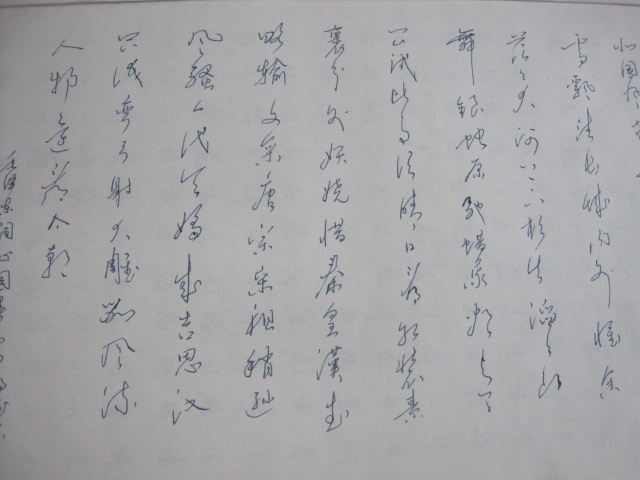 北国风光
雪飘望长城内外惟余
莽莽大河上下顿失滔滔山
舞银蛇原驰蜡象欲与天
公试比高须晴日看红装素
裹分外妖娆惜秦皇漢武
略输文采唐宗宋祖稍逊
风骚一代天骄成吉思汉
只识弯弓射大雕数风流
人物还看今朝
毛泽东词沁园春